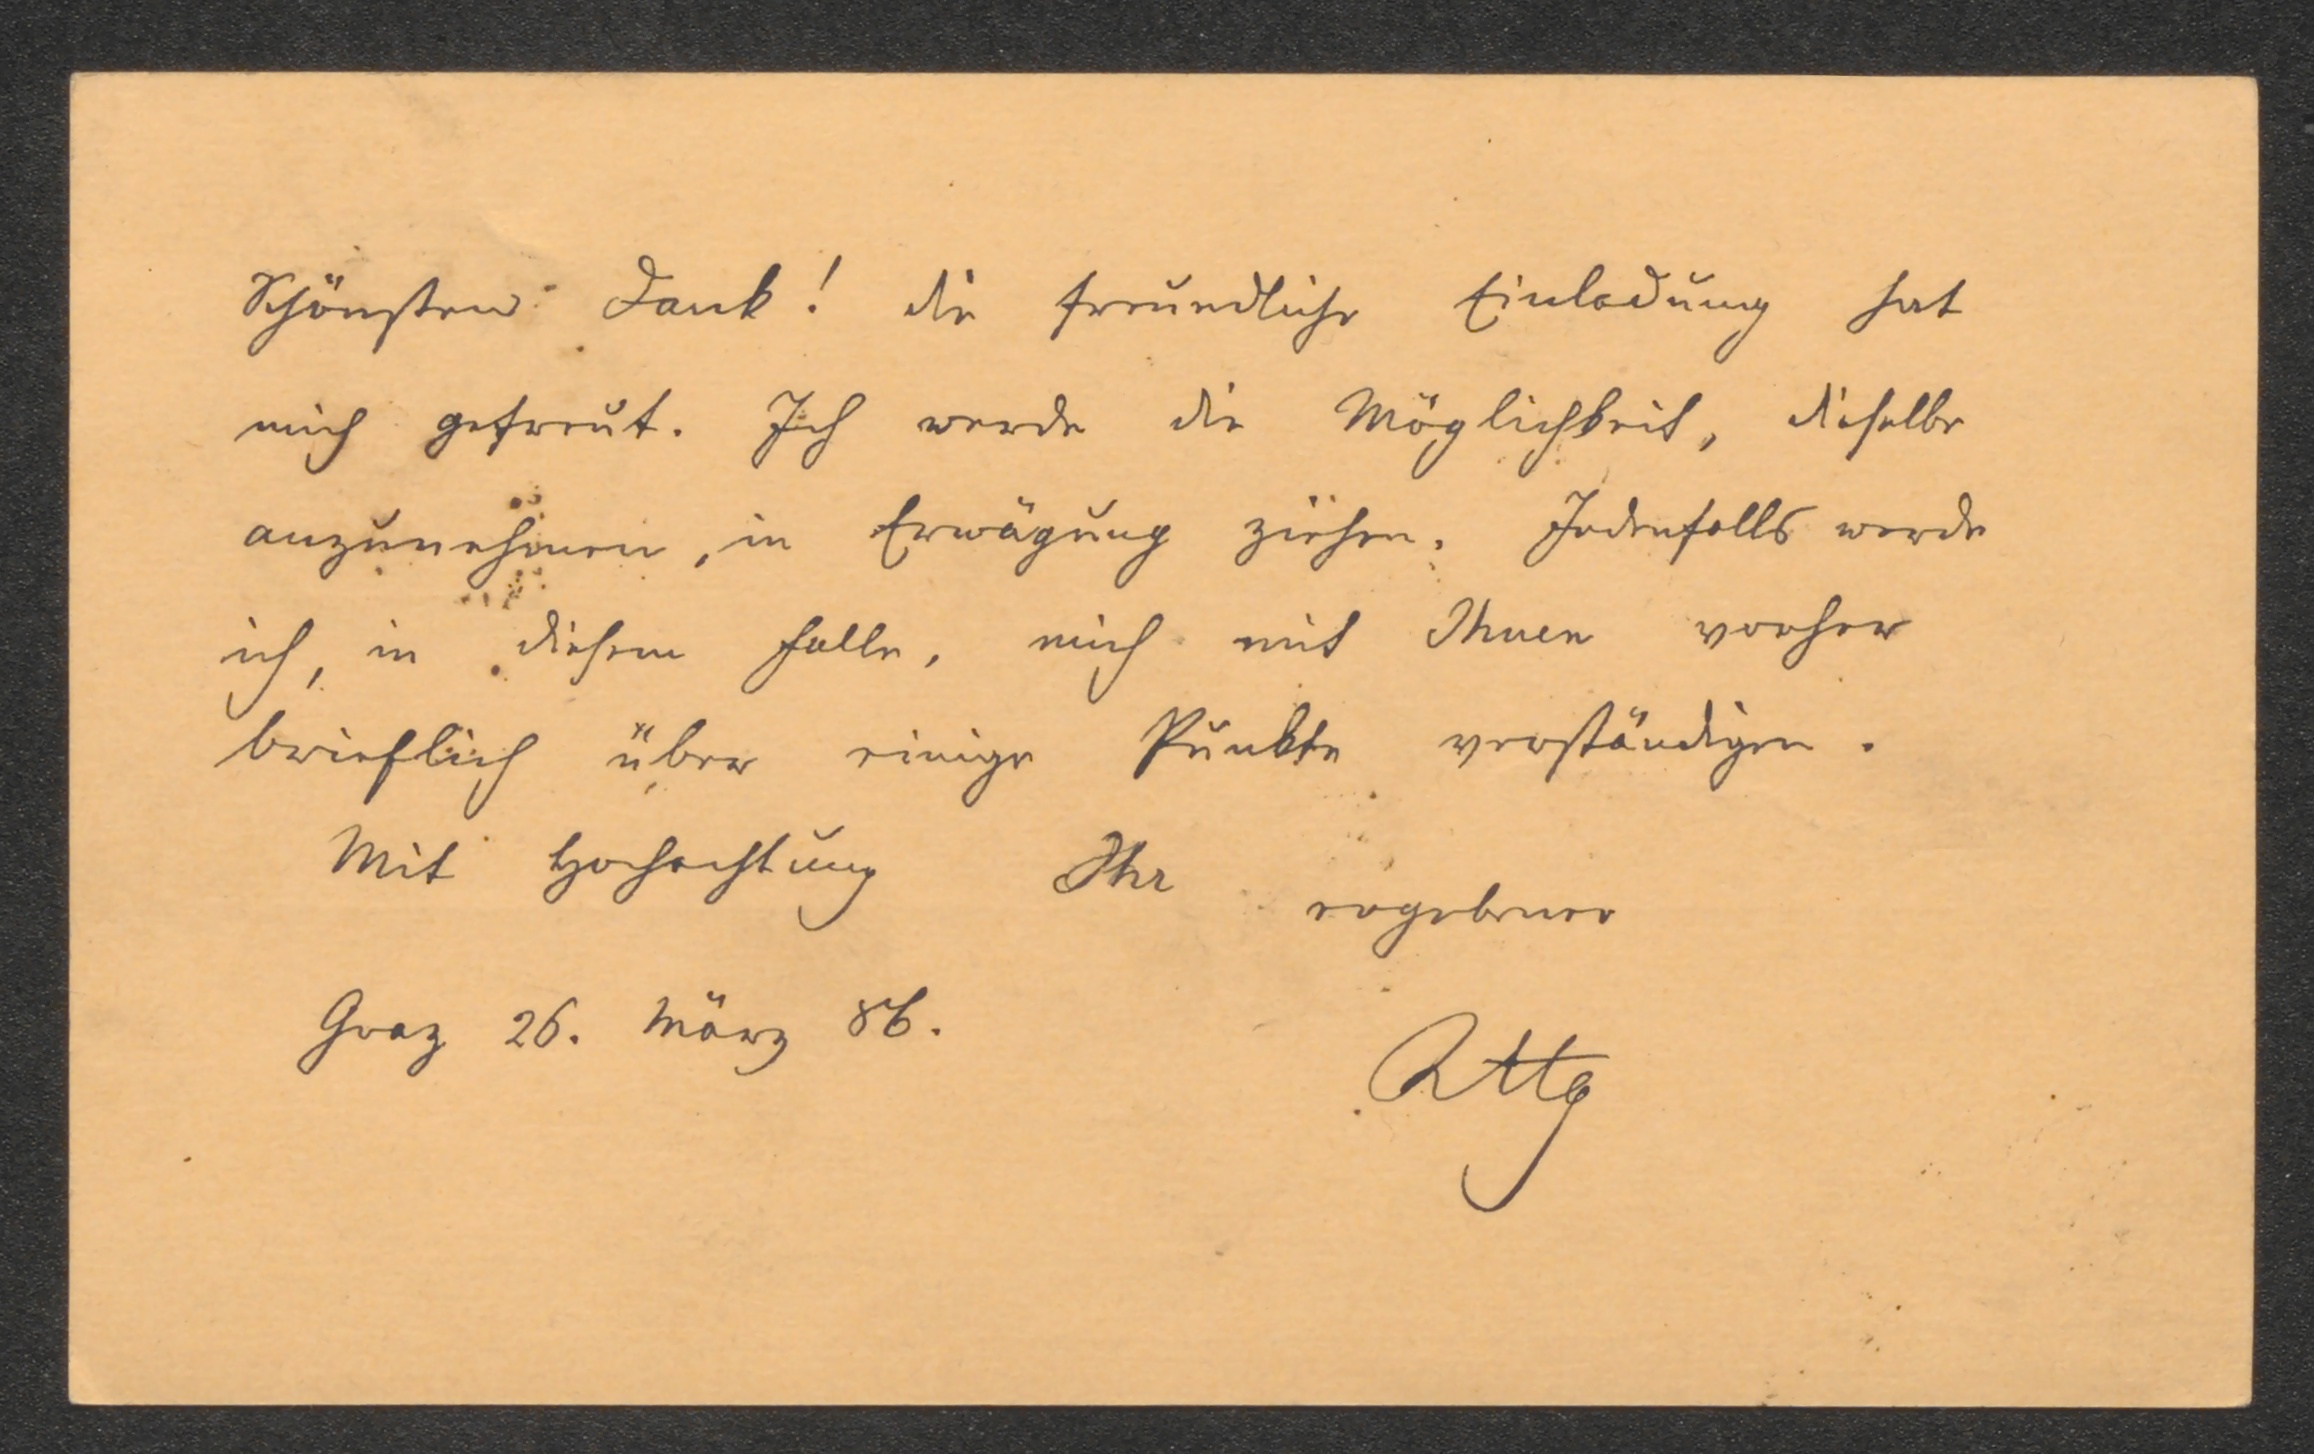 Schönsten Dank! die freundliche Einladung hat
mich gefreut. Ich werde die Möglichkeit, dieselbe
anzunehmen, in Erwägung ziehen. Jedenfalls werde
ich, in diesem Falle, mich mit Ihnen vorher
brieflich über einige Punkte verständigen.
Mit Hochachtung Ihr
ergebener
Graz 26. März 86.